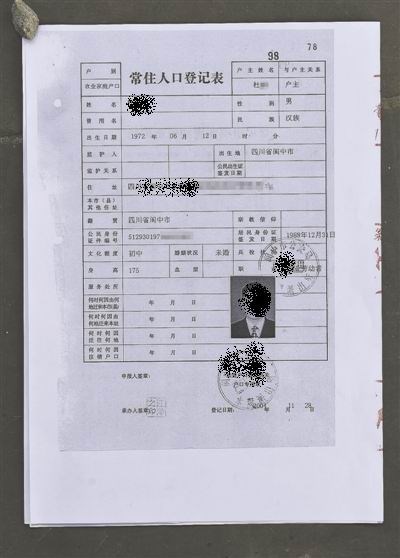 78
98
常住人口登记表
户 别
户主姓名
与户主关系
农业家庭户口
杜
户主
姓 名
性 别
男
曾用名
民 族
汉族
出生日期
1972 年 06 月 12 日 时 分
监护人
出生地
四川省阆中市
监护关系
公民出生证
签发日期
住 址
四
本市(县)
其他住址
籍 贯
四川省阆中市
宗教信仰
公民身份
证件编号
512930197
居民身份证
签发日期
1989年12月31日
文化程度
初中
婚姻状况
未婚
兵役
身 高
175
血 型
职
劳动者
服务处所
何时何因由何
地迁来本市(县)
年 月 日
何时何因由
何地迁来本址
年 月 日
何时何因
迁往何地
年 月 日
何时何因
注销户口
年 月 日
申报人签章:
承办人签章:
登记日期: 2004 年 11 月 28 日